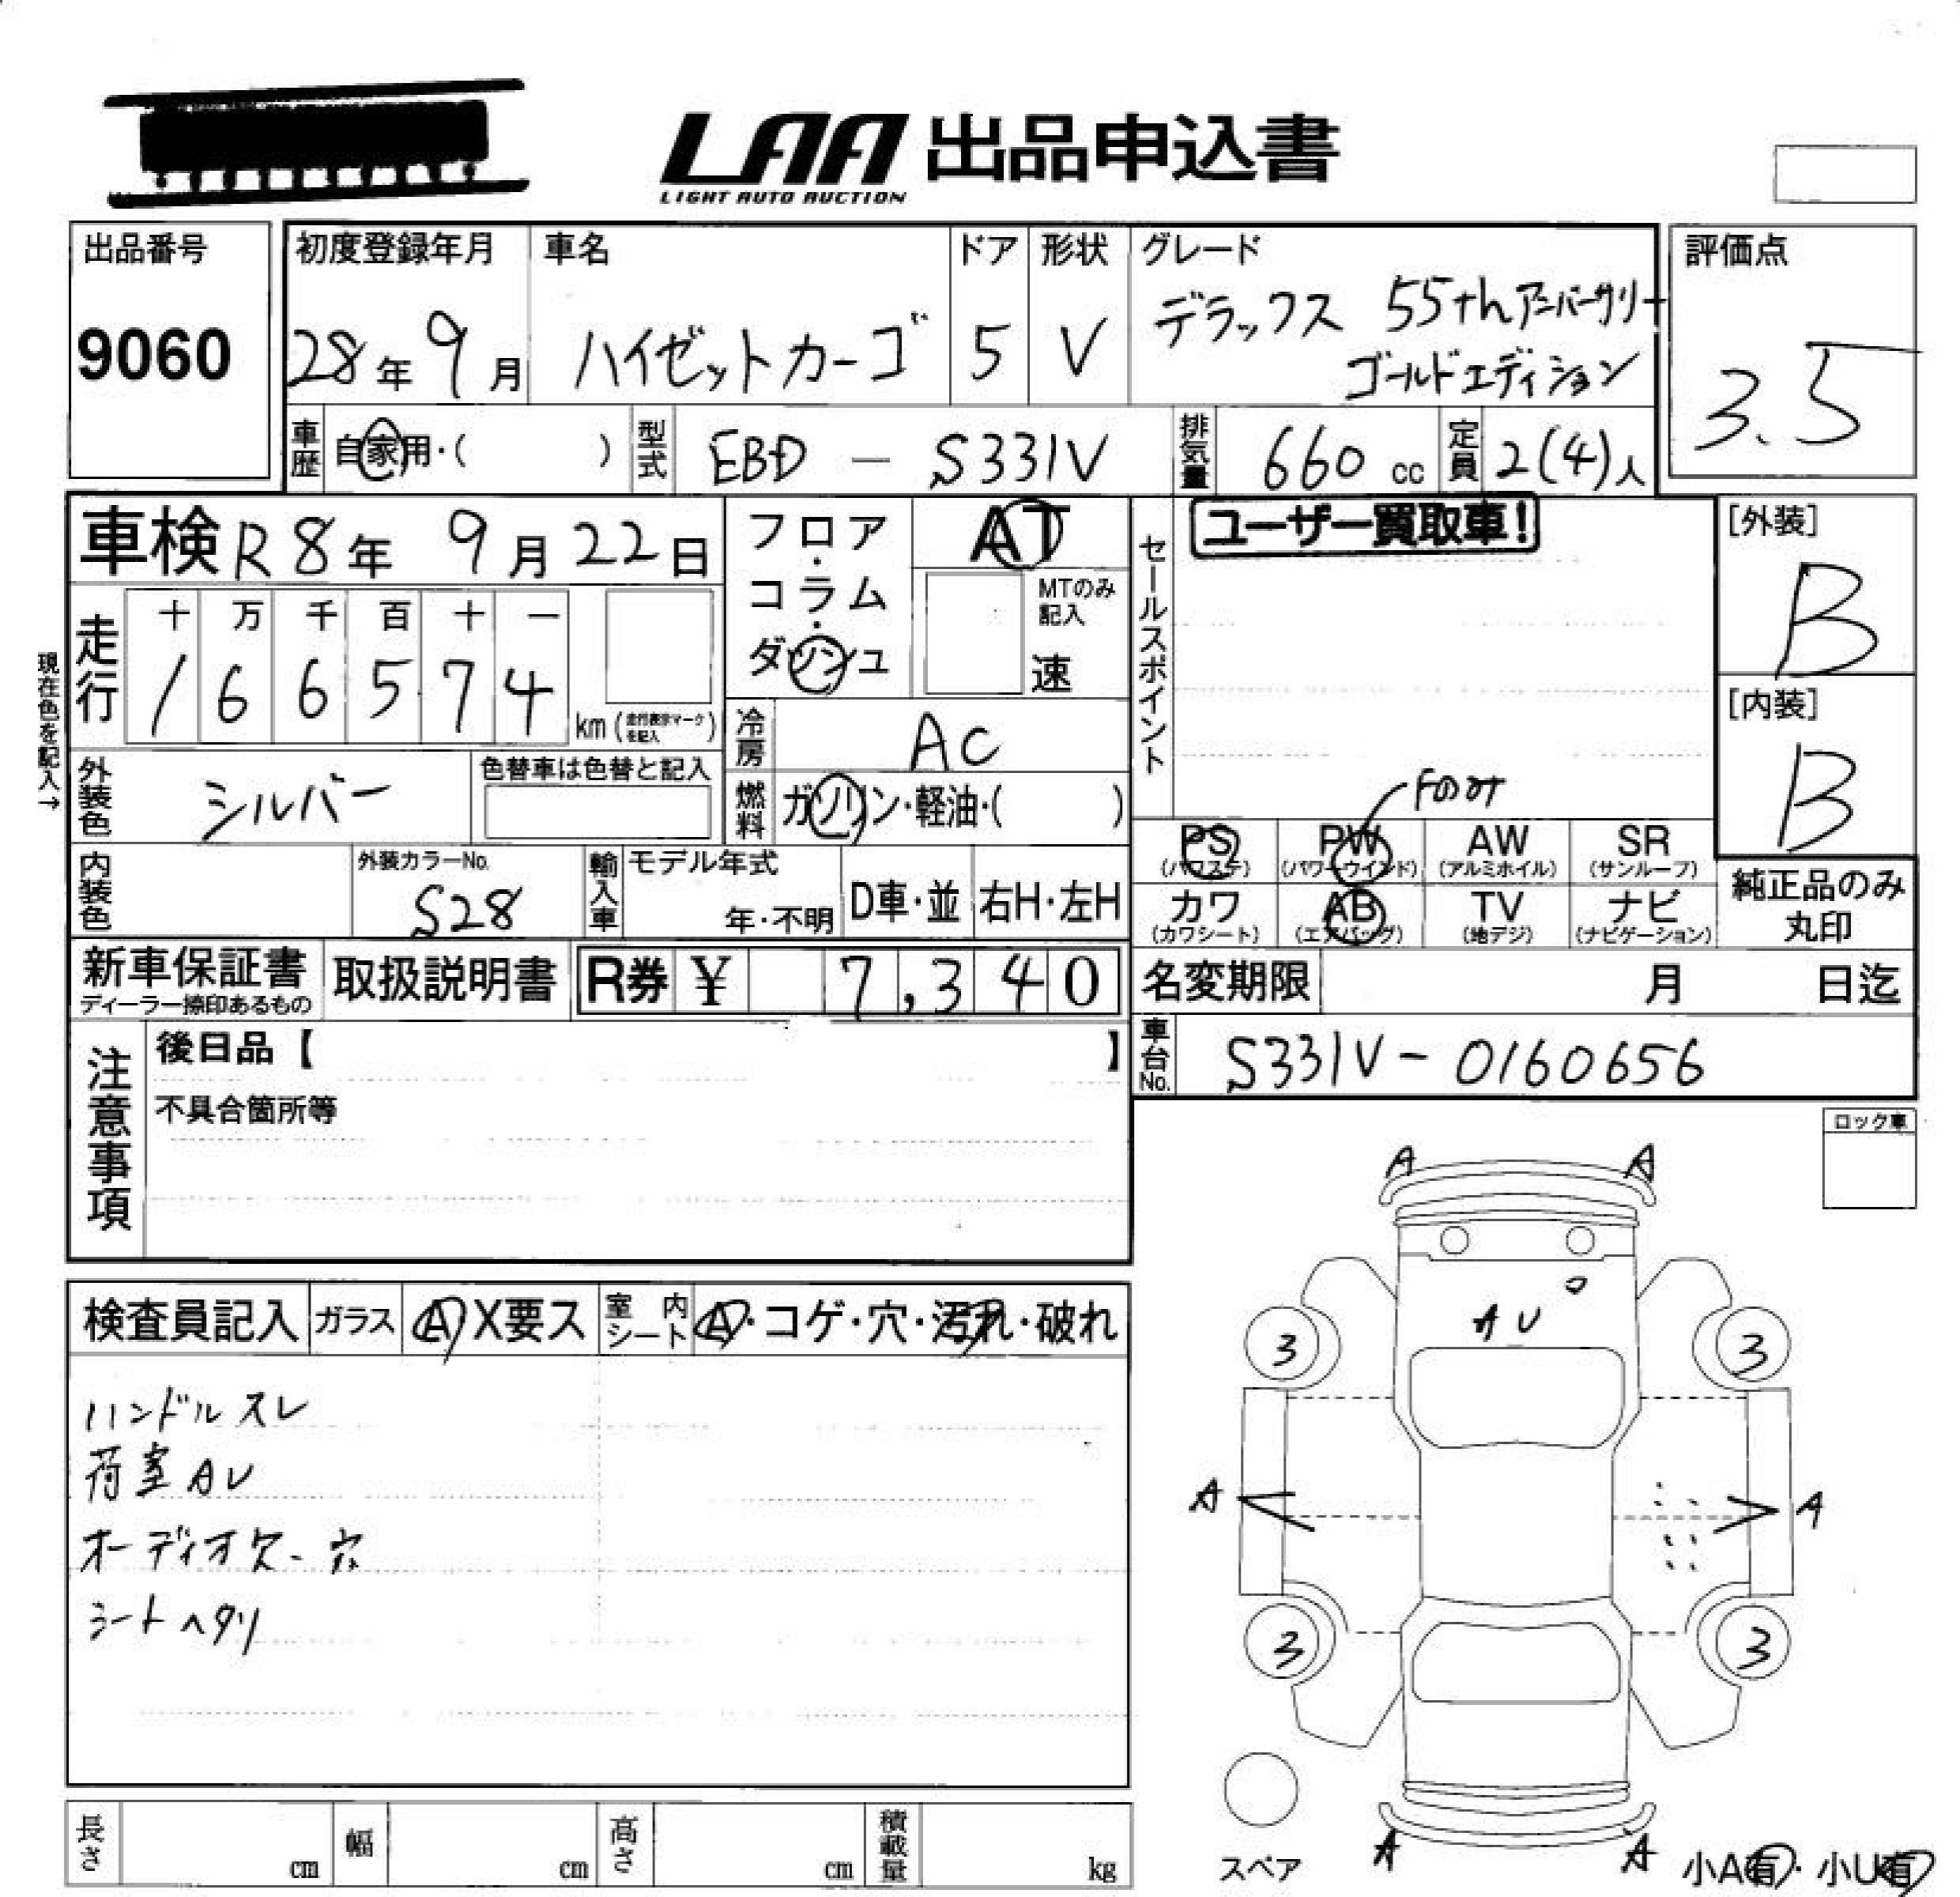 LAA 出品申込書
LIGHT AUTO AUCTION
出品番号
9060
初度登録年月
28年9月
車名
ハイゼットカーゴ
ドア
5
形状
V
グレード
デラックス 55thアニバーサリー
ゴールドエディション
評価点
3.5
車歴 自家用・( )
型式 EBD - S331V
排気量 660 cc
定員 2(4)人
車検 R8年 9月 22日
フロア・コラム・ダッシュ
AT
MTのみ記入
速
セールスポイント
ユーザー買取車!
[外装]
B
[内装]
B
現在色を記入→
走行
十 万 千 百 十 一
1 6 6 5 7 4
km (走行表示マークを記入)
冷房 AC
外装色 シルバー
色替車は色替と記入
燃料 ガソリン・軽油・( )
Fのみ
PS (パワステ)
PW (パワーウインド)
AW (アルミホイル)
SR (サンルーフ)
カワ (カワシート)
AB (エアバッグ)
TV (地デジ)
ナビ (ナビゲーション)
純正品のみ
丸印
内装色
外装カラーNo.
S28
輸入車
モデル年式
年・不明
D車・並
右H・左H
新車保証書
ディーラー捺印あるもの
取扱説明書
R券 ¥ 7,340
名変期限 月 日迄
車台No. S331V - 0160656
注意事項
後日品【 】
不具合箇所等
ロック車
検査員記入
ガラス
A X要ス
室内シート
A・コゲ・穴・汚れ・破れ
ハンドルスレ
荷室AU
オーディオ欠、穴
シートヘタリ
A A
AU
3 3
A A
3 3
A A
スペア
小A有・小U有
長さ cm
幅 cm
高さ cm
積載量 kg